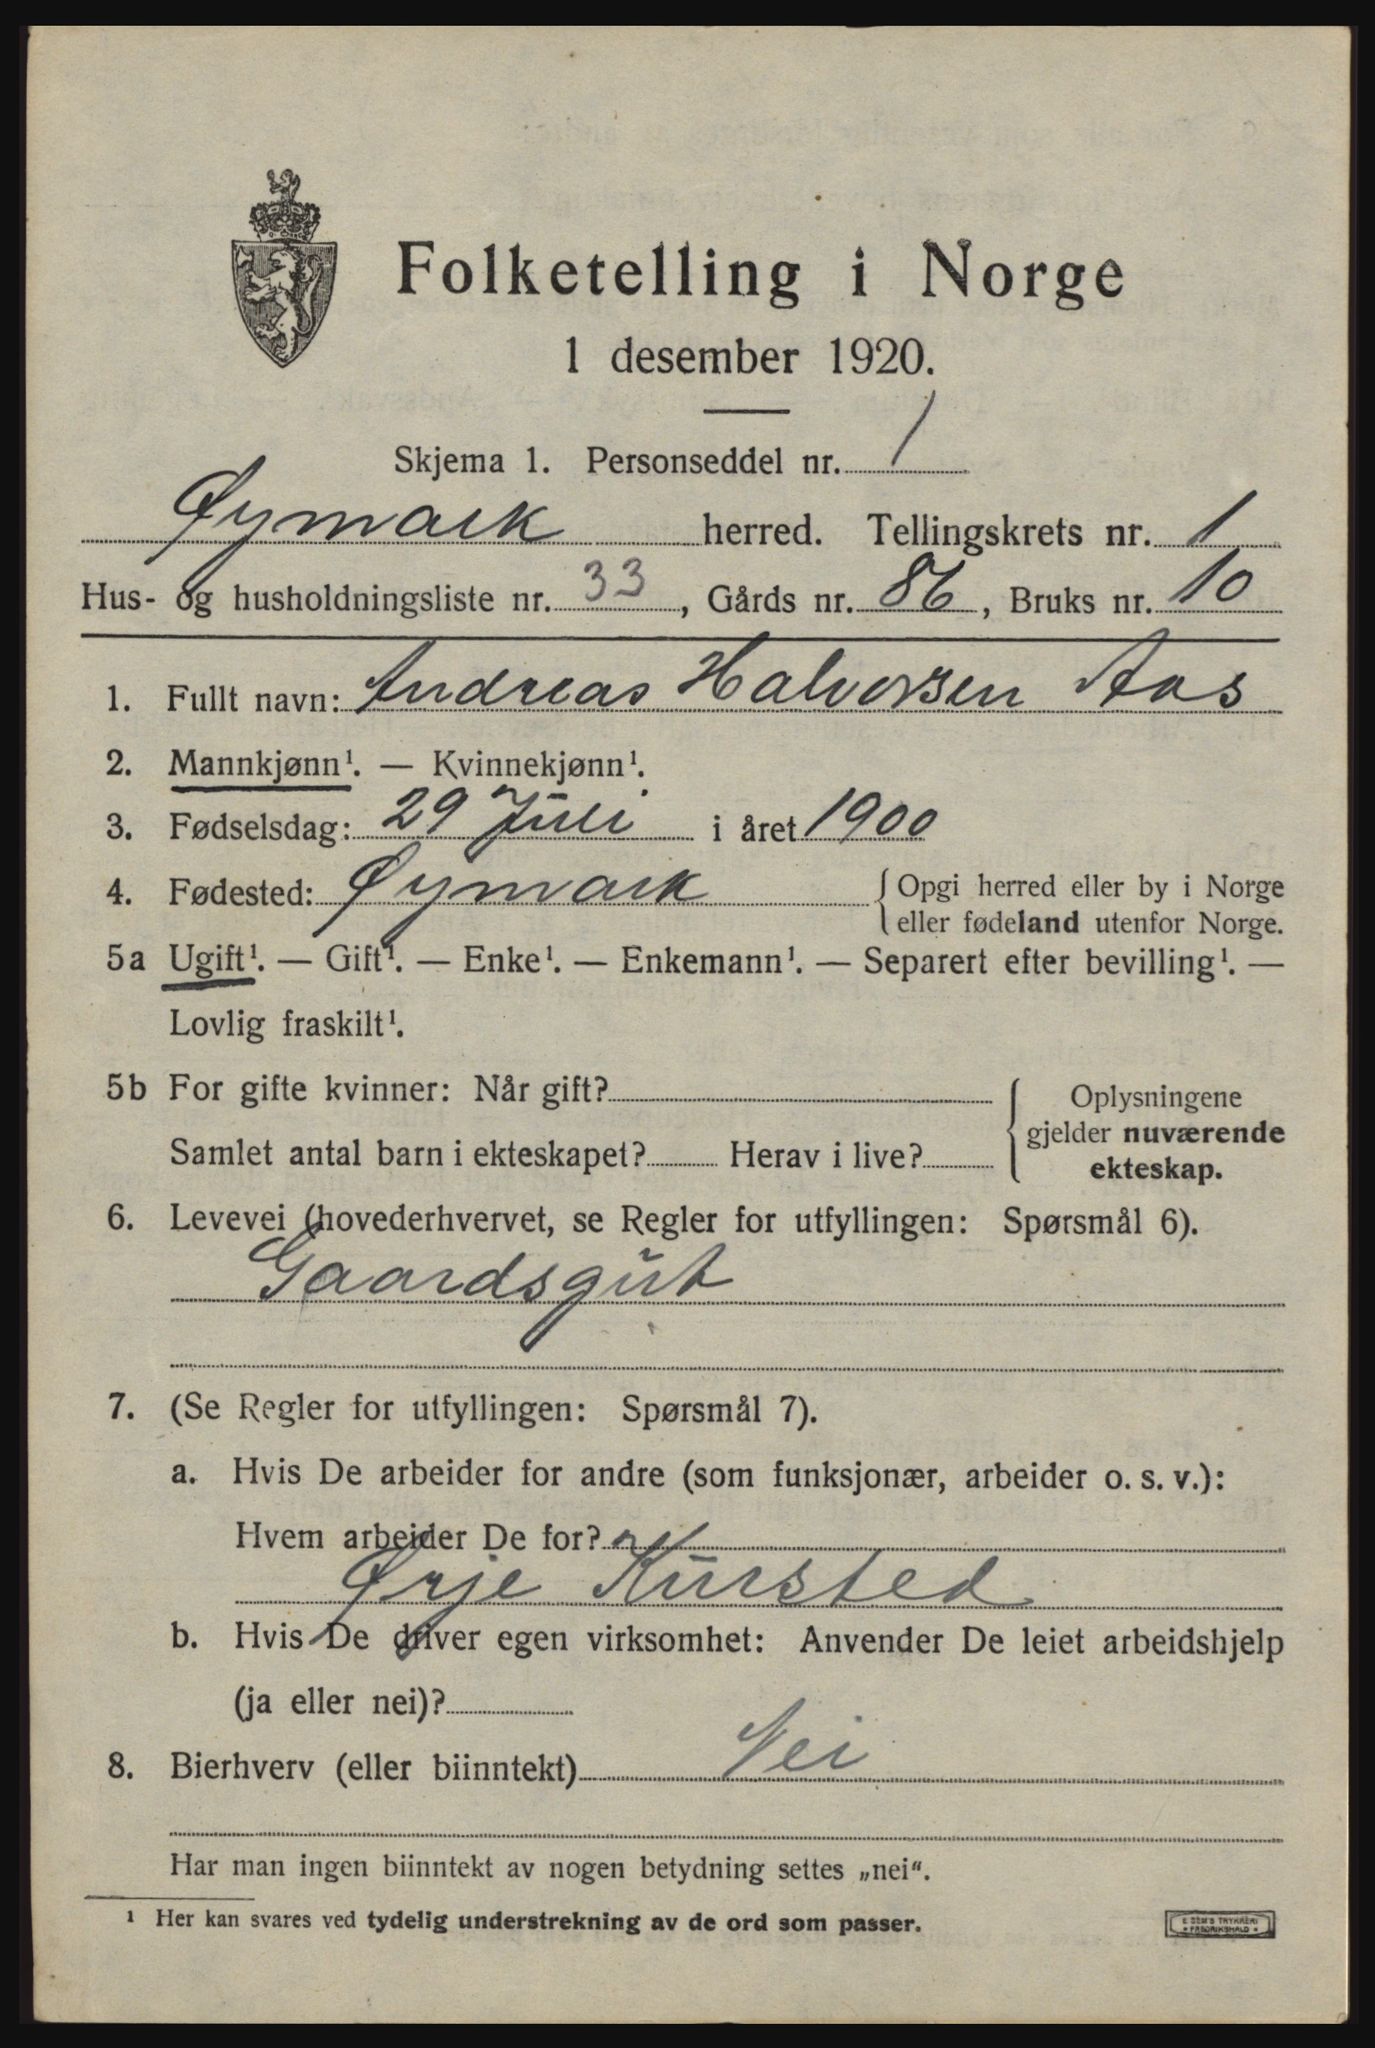 Folketelling i Norge
1 desember 1920.
Skjema 1. Personseddel nr. 1
Øymark herred. Tellingskrets nr. 1
Hus- og husholdningsliste nr. 33, Gårds nr. 86, Bruks nr. 10
1. Fullt navn: Andreas Halvorsen Aas
2. Mannkjønn¹. — Kvinnekjønn¹.
3. Fødselsdag: 29 Juli i året 1900
4. Fødested: Øymark { Opgi herred eller by i Norge
eller fødeland utenfor Norge.
5a Ugift¹. — Gift¹. — Enke¹. — Enkemann¹. — Separert efter bevilling¹. —
Lovlig fraskilt¹.
5b For gifte kvinner: Når gift? { Oplysningene
gjelder nuværende
Samlet antal barn i ekteskapet? Herav i live?
ekteskap.
6. Levevei (hovederhvervet, se Regler for utfyllingen: Spørsmål 6).
Gaardsgut
7. (Se Regler for utfyllingen: Spørsmål 7).
a. Hvis De arbeider for andre (som funksjonær, arbeider o. s. v.):
Hvem arbeider De for?
Ørje Kursted
b. Hvis De driver egen virksomhet: Anvender De leiet arbeidshjelp
(ja eller nei)?
8. Bierhverv (eller biinntekt) Nei
Har man ingen biinntekt av nogen betydning settes „nei“.
¹ Her kan svares ved tydelig understrekning av de ord som passer.
E SEM'S TRYKKERI
FREDRIKSHALD